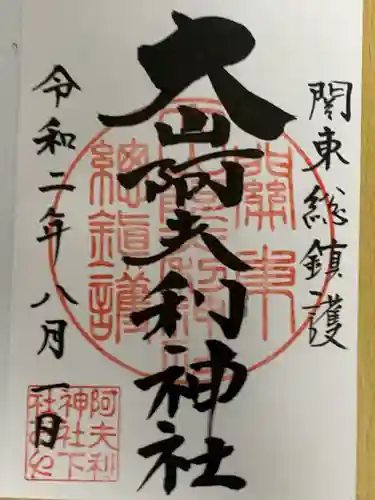 関東総鎮護
大山阿夫利神社
令和二年八月一日
關東
總鎮護
阿夫利
神社下
社